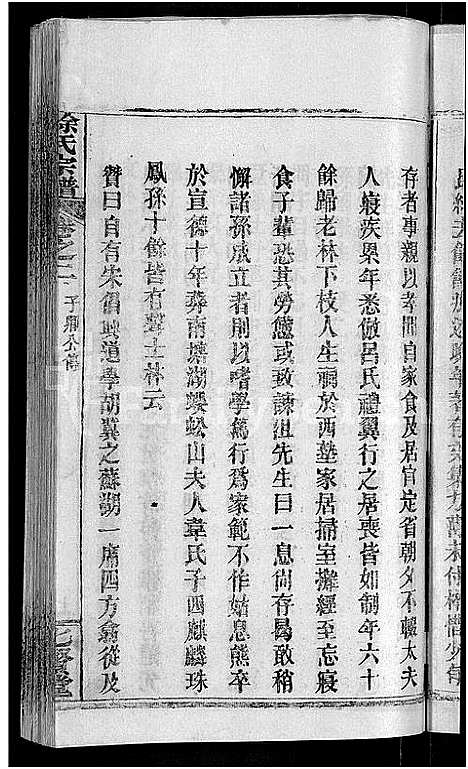 存者事親以孝聞自家食及居官定省朝夕不輟太夫
人嬰疾累年悉倣呂氏禮翼行之居喪皆如制年六十
餘歸老林下枝人生祠於西塾家居掃室攤經至忘寢
食子輩恐其勞憊或致諫沮先生曰一息尚存曷敢稍
懈諸孫成立者則以嗜學篤行爲家範不作姑息態卒
於宣德十年葬南塘湖螻蚣山夫人韋氏子四麒麟珠
鳳孫十餘皆有聲士林云
贊曰自有宋倡興道學胡冀之蘇湖一席四方翕從及
徐氏宗譜 卷之二 子鼎公傳